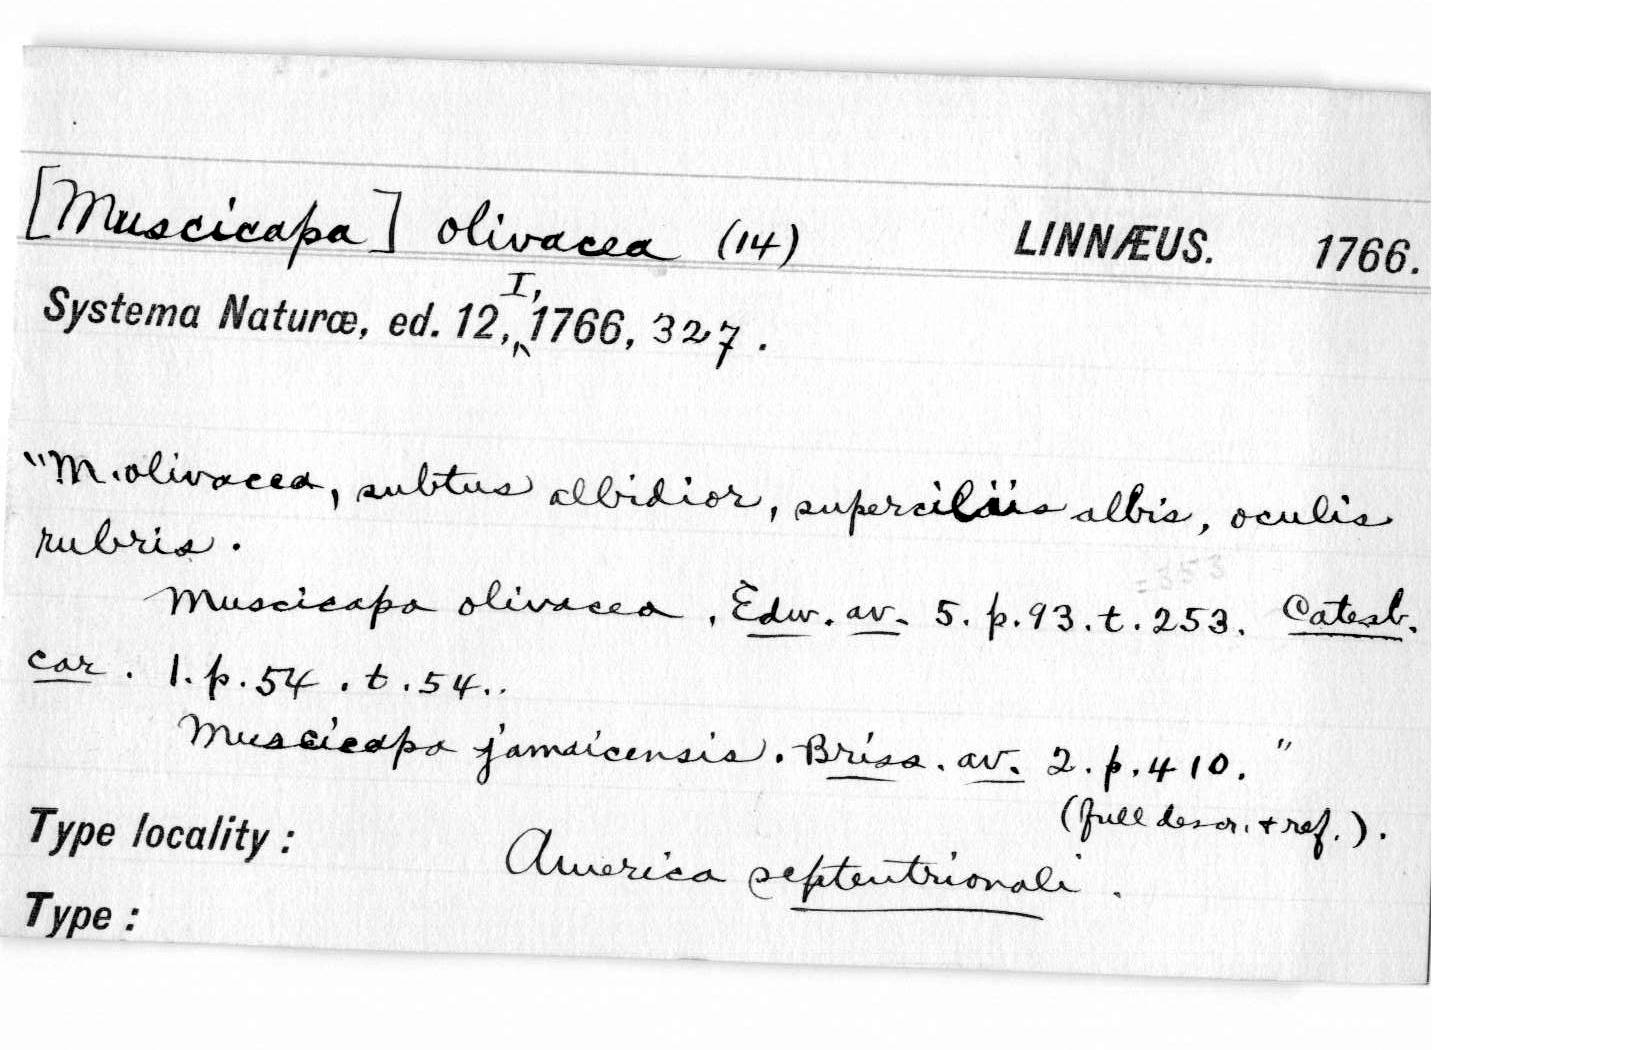 [Muscicapa] olivacea (14) LINNÆUS. 1766.
Systema Naturæ, ed. 12, I, 1766, 327.
"M. olivacea, subtus albidior, superciliis albis, oculis
rubris.
= 353
Muscicapa olivacea. Edw. av. 5. p. 93. t. 253. Catesb.
car. 1. p. 54. t. 54..
Muscicapa jamaicensis. Briss. av. 2. p. 410."
(full descr. + ref.).
Type locality: America septentrionali.
Type: